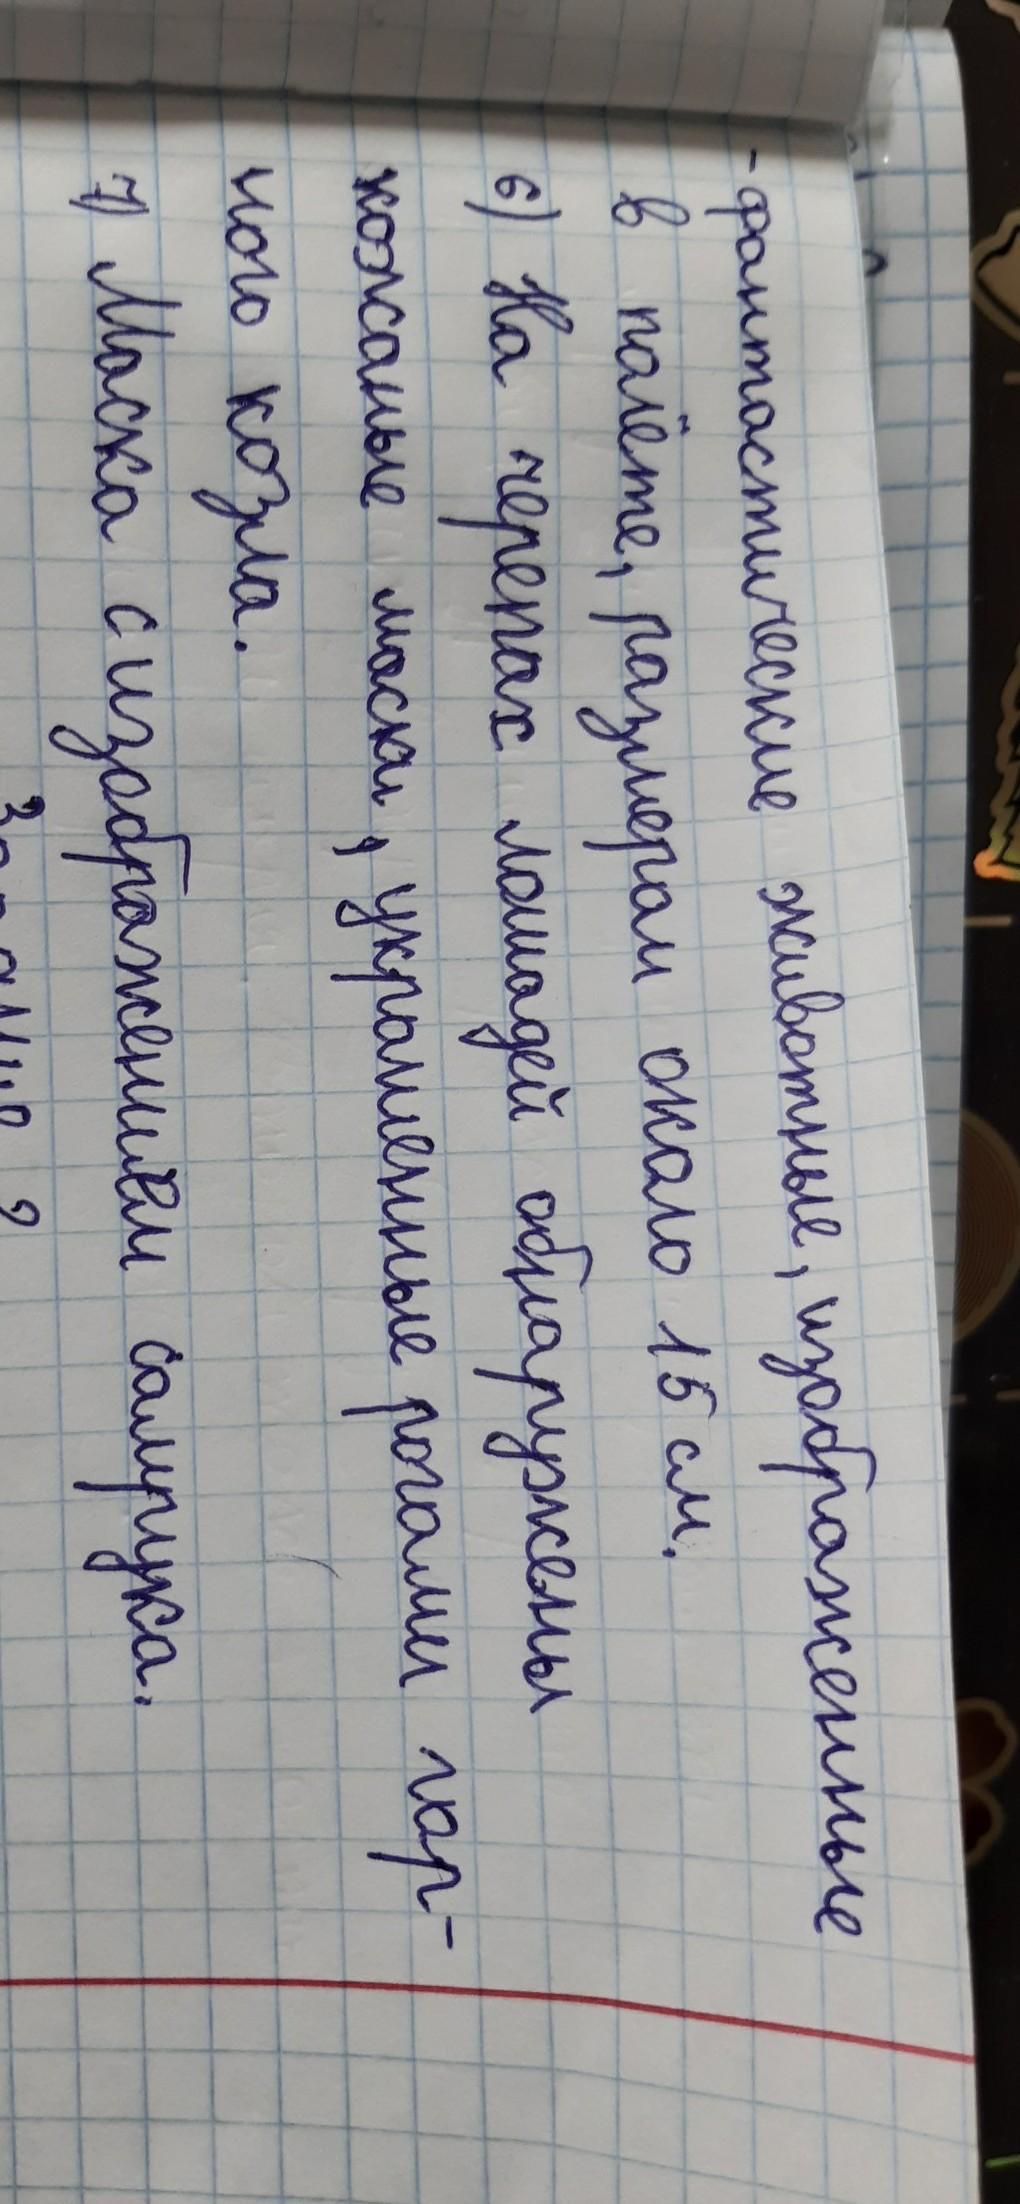 - фантастические животные, изображенные
в полёте, размером около 15 см.
6) На черепах лошадей обнаружены
кожаные маски, украшенные рогами гор-
ного козла.
7) Маска с изображением самрука.
Задание 2